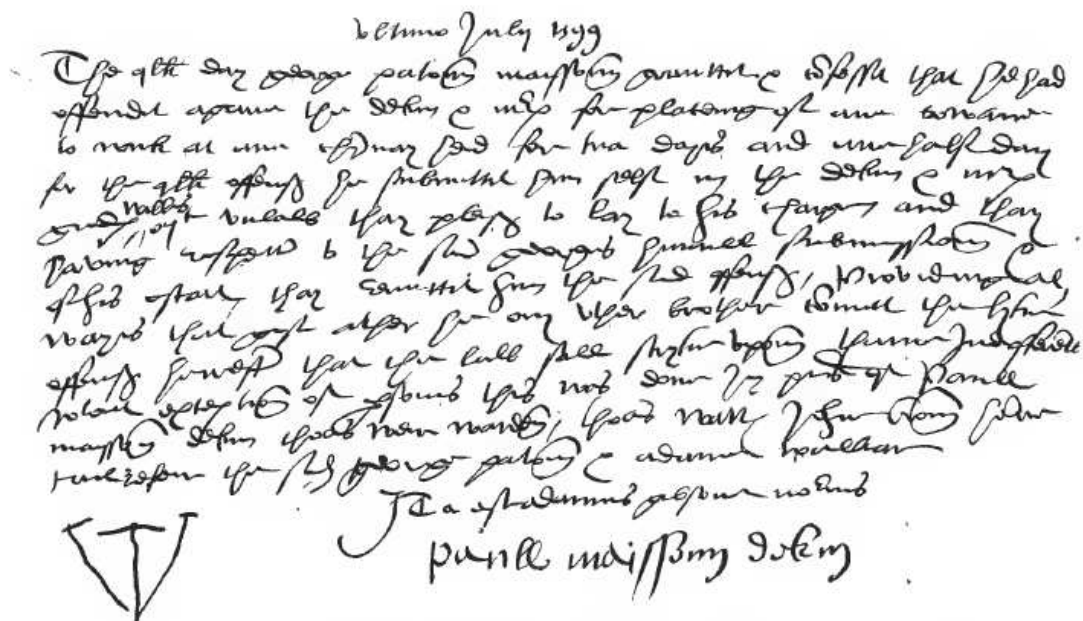 vltimo July 1599
The qlk day george patoun maissoun granttit & cōfessit that he had
offendit agane the dekin & mrs for placeing of ane cowane
to wirk at ane chymnay heid for twa dayis and ane half day
for the qlk offenss he submittit him self in the dekin & mrs
gude willis qt vnlaw thay pleiss to lay to his charge and thay
having respect to the said georges humill submissioun &
of his estait thay remittit him the said offenss, Providing al
wayis that gif ather he ony vther brother cōmitt the lyke
offenss heirefter that the law sall stryke vpoun thame
wtout exceptioun of psonis this was done in pns of Paull
maissoun dekin thoas weir warden, thoas watt Johne broun henrie
tailzefeir the said george patoun & adame walkar
Ita est adamus gibsone norius
Paull maissoun dekin